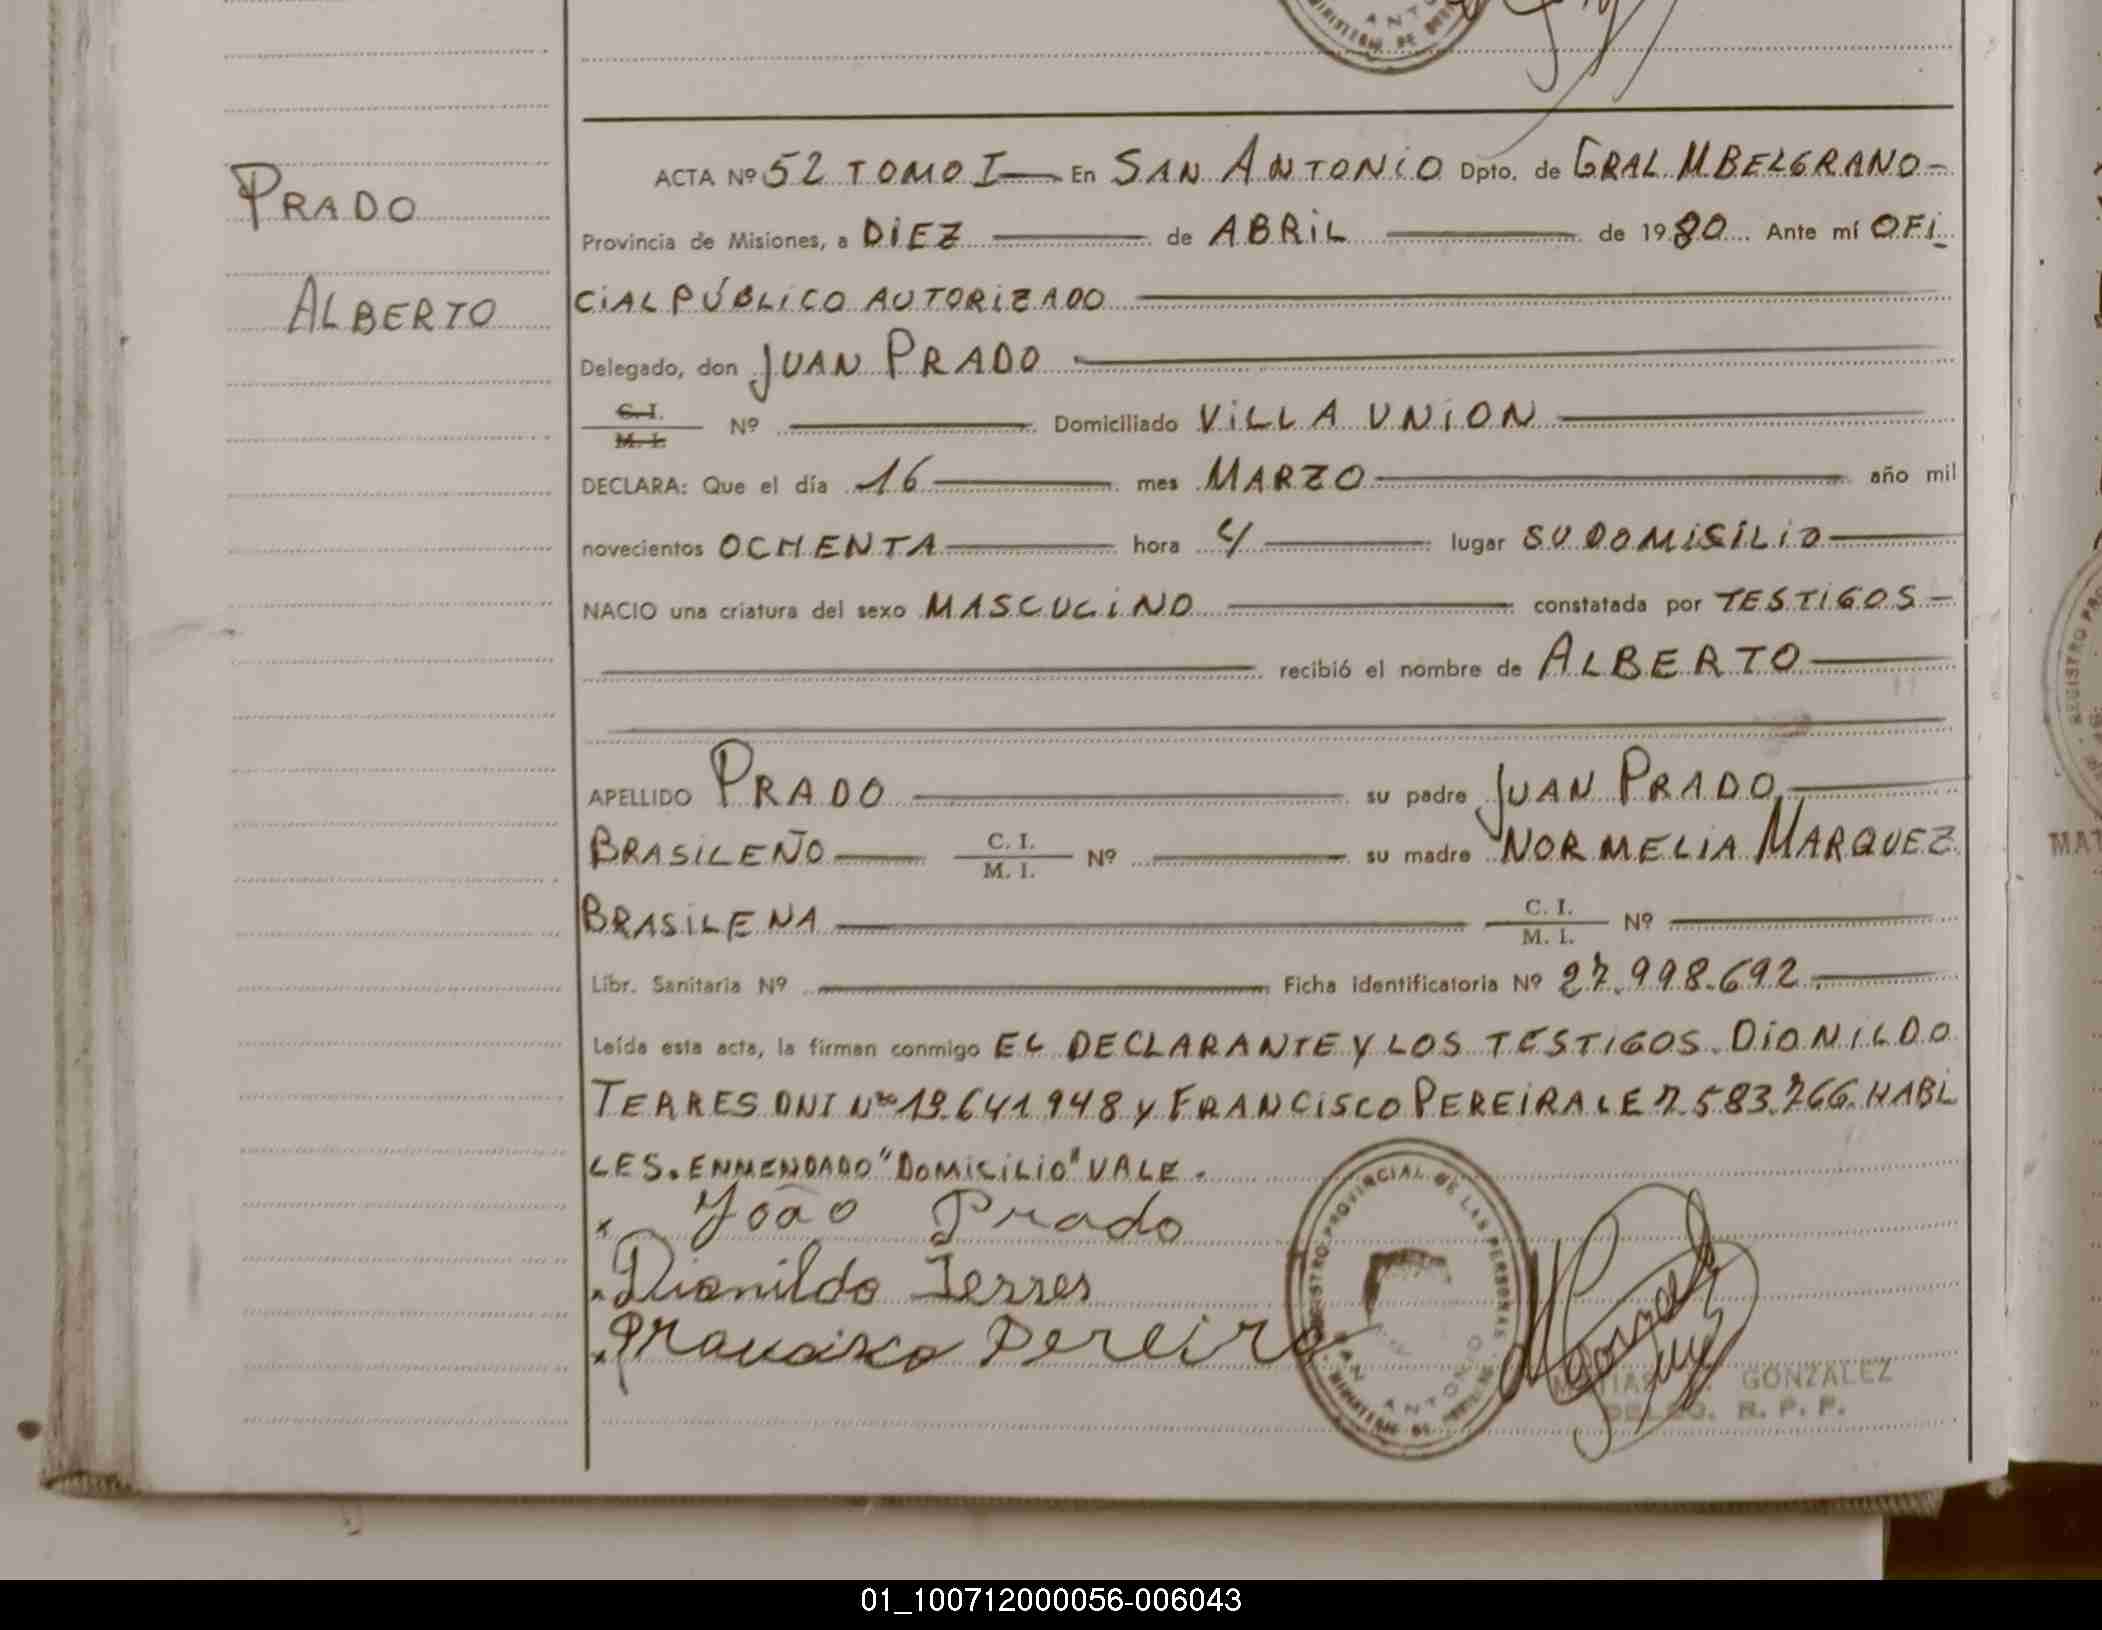 PRADO
ALBERTO
ACTA Nº 52 TOMO I En SAN ANTONIO Dpto. de GRAL M BELGRANO
Provincia de Misiones, a DIEZ de ABRIL de 1980 Ante mí OFI
CIAL PÚBLICO AUTORIZADO
Delegado, don JUAN PRADO
C. I.
M. I. Nº Domiciliado VILLA UNION
DECLARA: Que el día 16 mes MARZO año mil
novecientos OCHENTA hora 4 lugar SU DOMICILIO
NACIO una criatura del sexo MASCULINO constatada por TESTIGOS
recibió el nombre de ALBERTO
APELLIDO PRADO su padre JUAN PRADO
BRASILEÑO C. I. M. I. Nº su madre NORMELIA MARQUEZ
BRASILENA C. I. M. I. Nº
Libr. Sanitaria Nº Ficha identificatoria Nº 27.998.692
Leída esta acta, la firman conmigo EL DECLARANTE Y LOS TESTIGOS. DIONILDO
TERRES DNI Nº 19.641.948 y FRANCISCO PEREIRA LE 7.583.766. HABI
LES. ENMENDADO "DOMICILIO" VALE.
x João Prado
x Dionildo Terres
x Francisco Pereira
REGISTRO PROVINCIAL DE LAS PERSONAS
SAN ANTONIO
GONZALEZ
R. P. P.
01_100712000056-006043